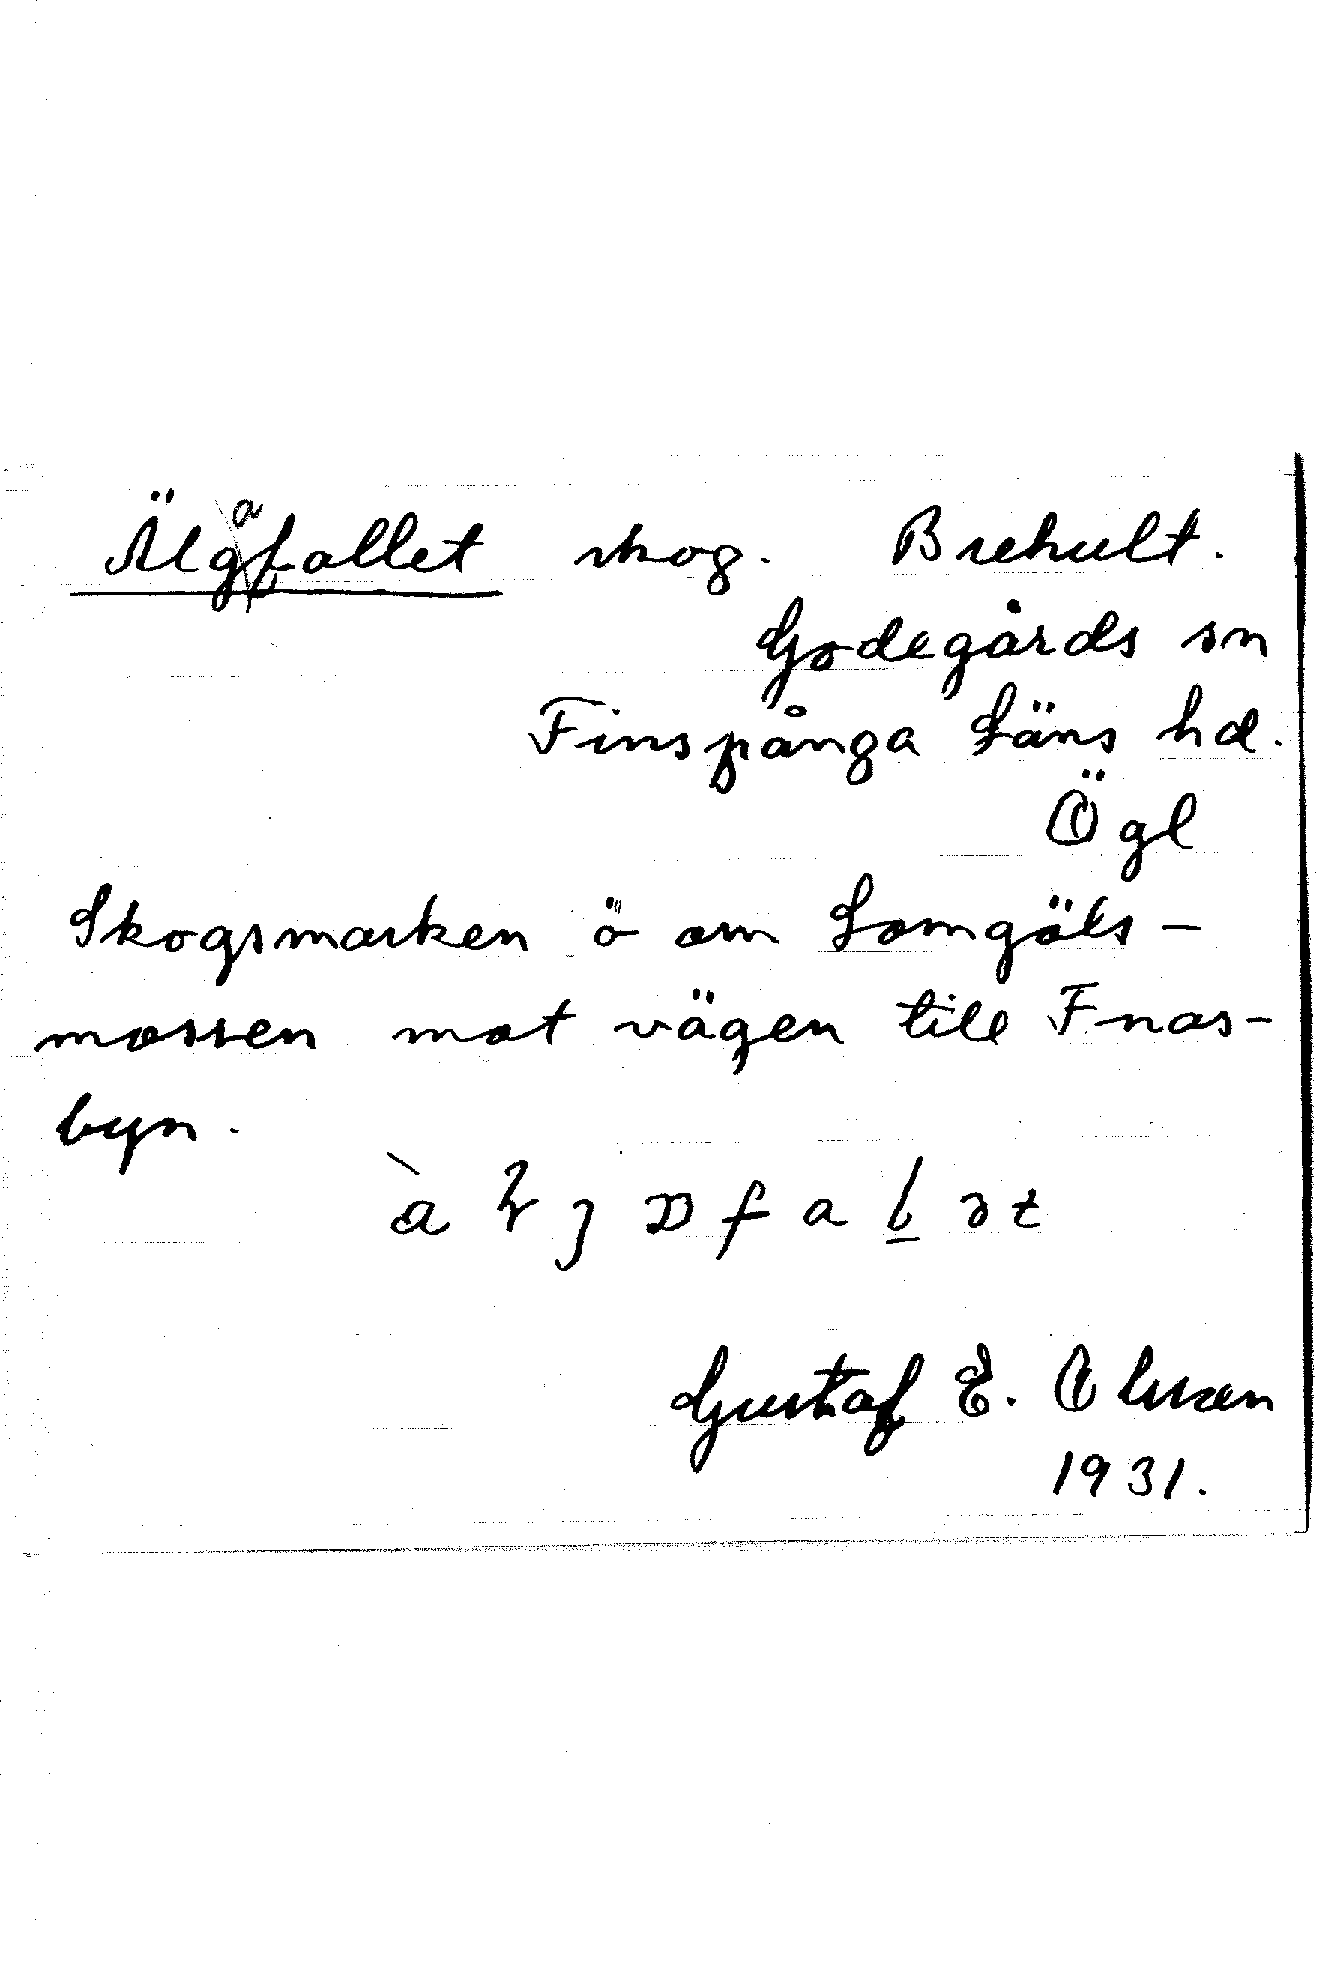 Älgafallet skog. Brehult.
Godegårds sn
Finspånga Läns hd.
Ögl
Skogsmarken ö om Lomgöls-
mossen mot vägen till Fnas-
byn.
Gustaf E. Olsson
1931.